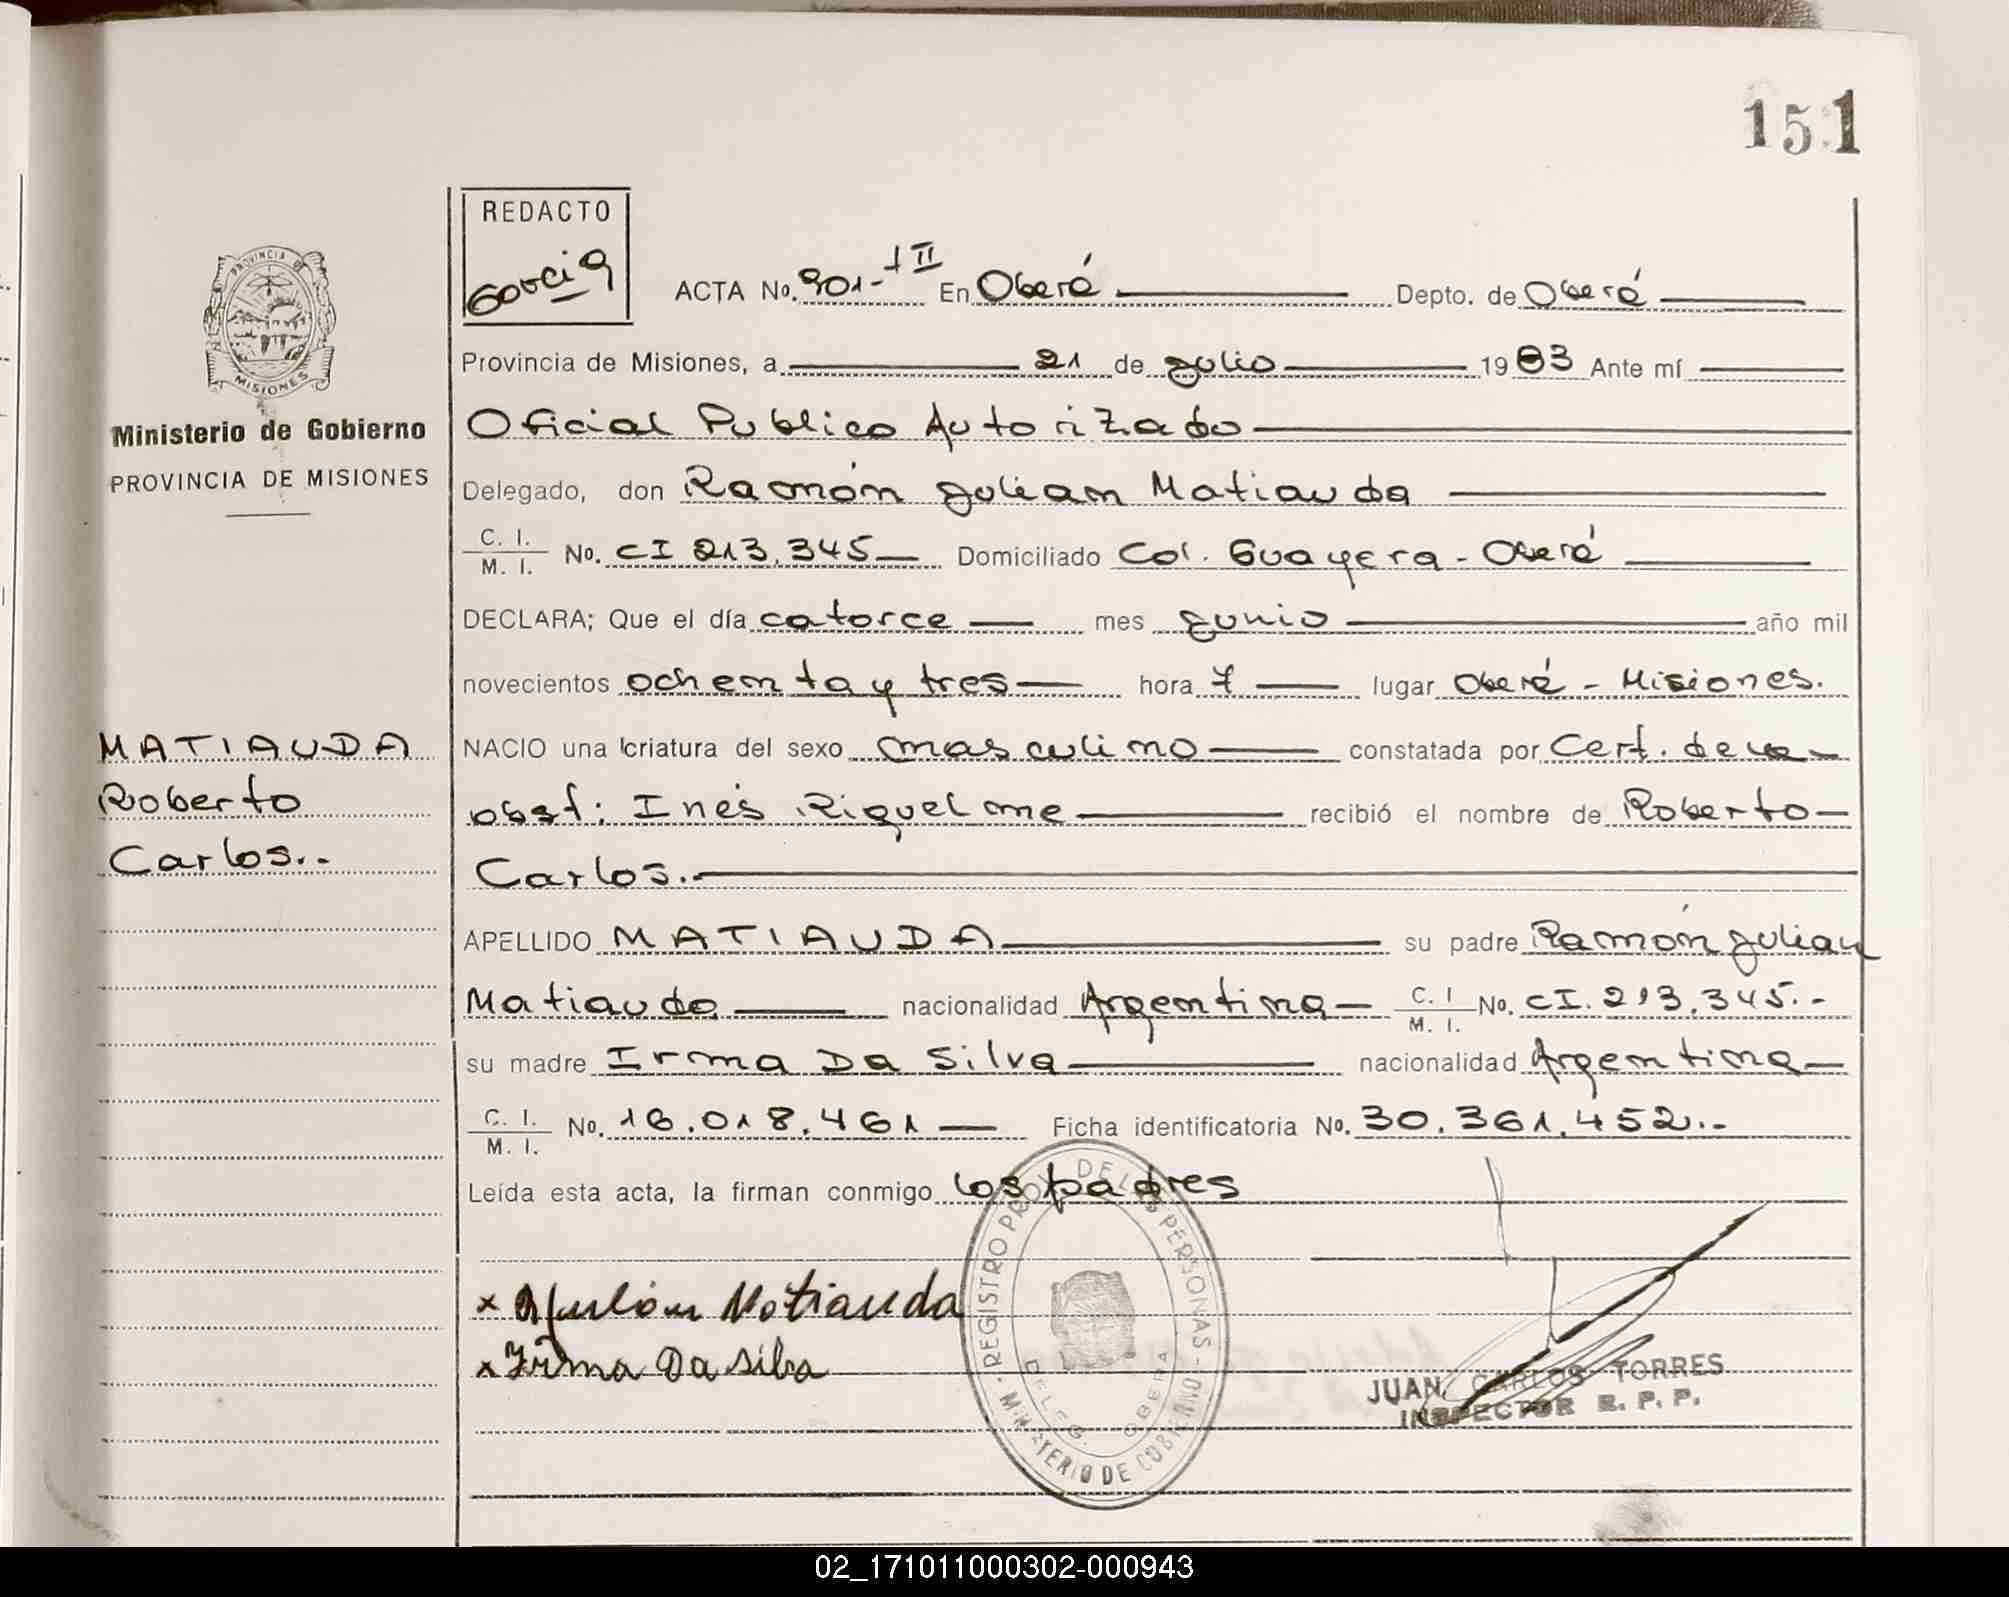 151
REDACTO
Garcia
ACTA No. 901- t II En Oberá Depto. de Oberá
PROVINCIA DE
MISIONES
Provincia de Misiones, a 21 de Julio 1983 Ante mí
Ministerio de Gobierno
Oficial Publico Autorizado
PROVINCIA DE MISIONES
Delegado, don Ramón Julian Matiauda
C. I.
M. I. No. CI 213.345 Domiciliado Col. Guayera - Oberá
DECLARA; Que el día catorce mes Junio año mil
novecientos ochenta y tres hora 7 lugar Oberá - Misiones.
MATIAUDA
NACIO una criatura del sexo masculino constatada por Cert. de la
Roberto
obst: Inés Riquelme recibió el nombre de Roberto
Carlos.-
Carlos.-
APELLIDO MATIAUDA su padre Ramón Julian
Matiauda nacionalidad Argentina C. I
M. I. No. CI. 213.345.-
su madre Irma Da Silva nacionalidad Argentina
C. I.
M. I. No. 16.018.461 Ficha identificatoria No. 30.361.452.-
Leída esta acta, la firman conmigo los padres
REGISTRO PROV. DE LAS PERSONAS - MINISTERIO DE GOBIERNO
DELEG. OBERA
x Julián Matiauda
x Irma Da silva
JUAN CARLOS TORRES
INSPECTOR R. P. P.
02_171011000302-000943